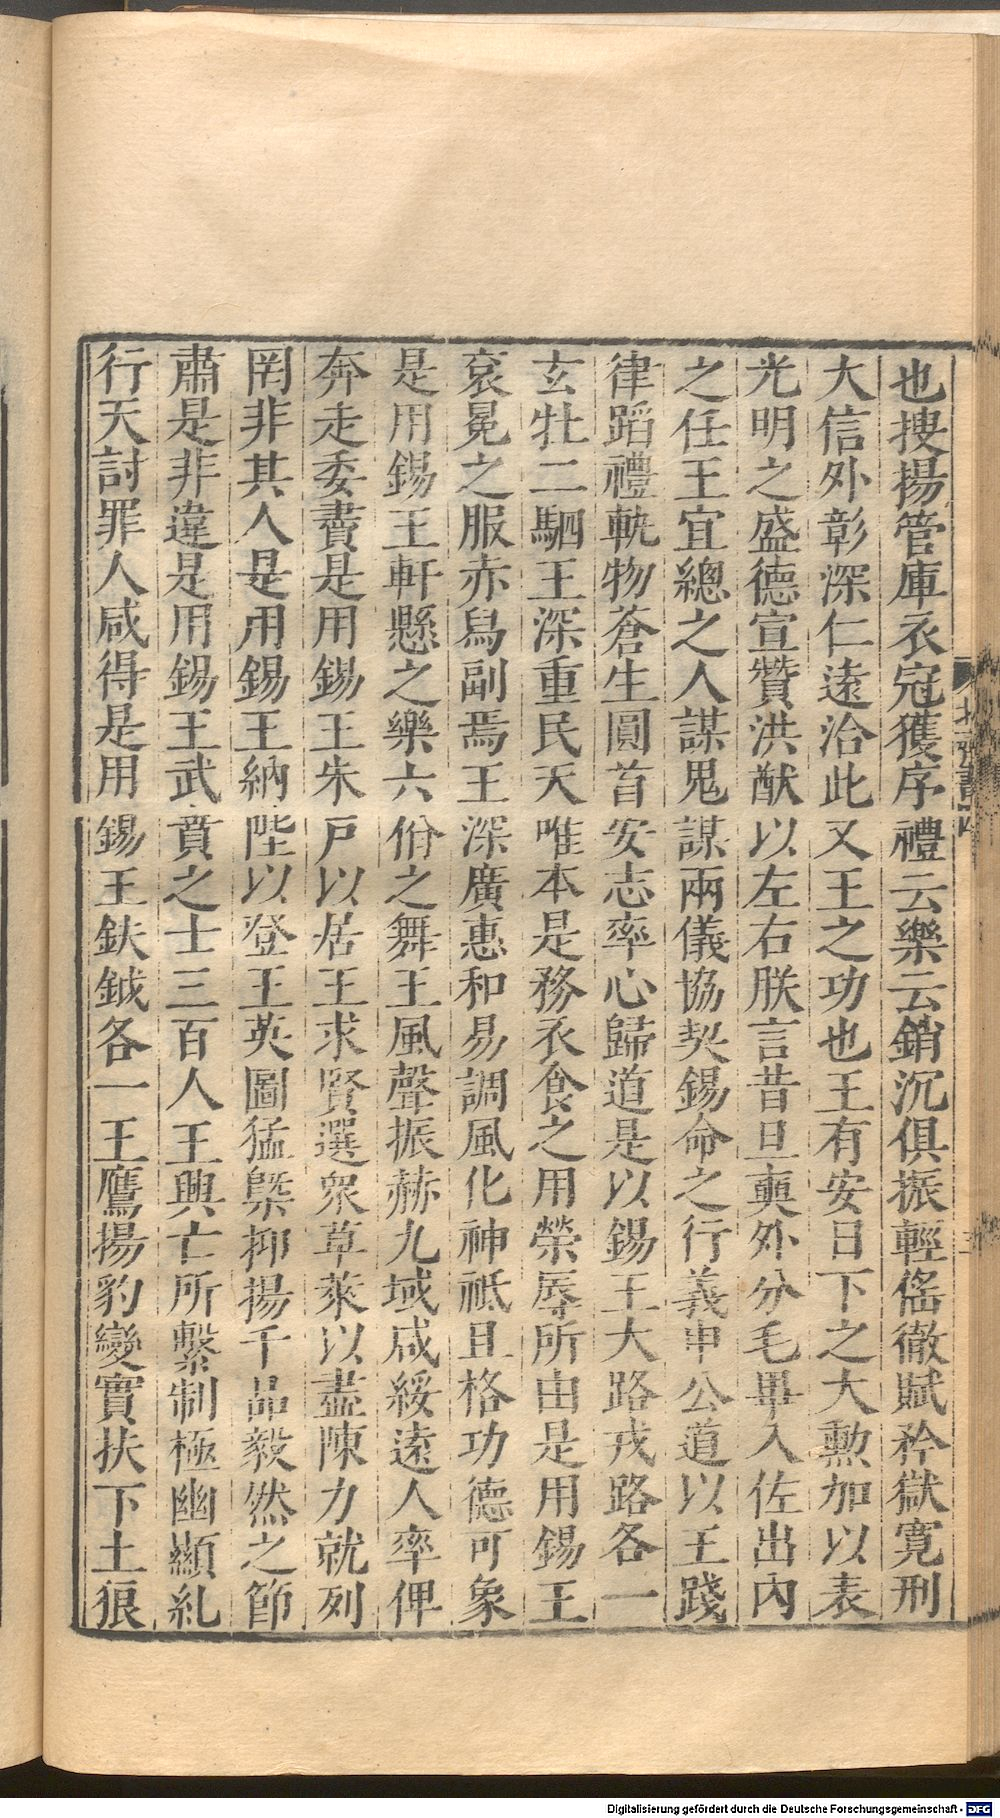 也搜揚管庫衣冠獲序禮云樂云銷沉俱振輕徭徹賦矜獄寛刑
大信外彰深仁遠洽此又王之功也王有安日下之大勲加以表
光明之盛德宣贊洪猷以左右朕言昔旦奭外分毛畢入佐出内
之任王宜總之人謀鬼謀兩儀協契錫命之行義申公道以王踐
律蹈禮軌物蒼生圓首安志率心歸道是以錫王大路戎路各一
玄牡二駟王深重民天唯本是務衣食之用榮辱所由是用錫王
袞冕之服赤舄副焉王深廣惠和易調風化神祇且格功德可象
是用錫王軒懸之樂六佾之舞王風聲振赫九域咸綏遠人率俾
奔走委賮是用錫王朱戸以居王求賢選衆草萊以盡陳力就列
罔非其人是用錫王納陛以登王英圖猛槩抑揚千品毅然之節
肅是非違是用錫王武賁之士三百人王興亡所繫制極幽顯糺
行天討罪人咸得是用錫王鈇鉞各一王鷹揚豹變實扶下土狼
Digitalisierung gefördert durch die Deutsche Forschungsgemeinschaft - DFG